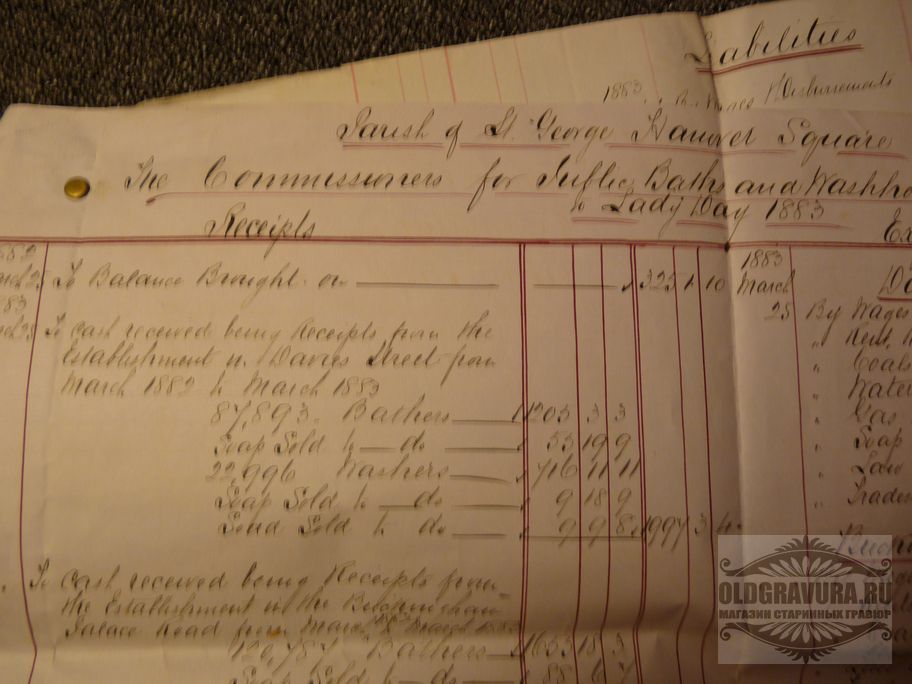 Liabilities
1883
Disbursements
Parish of St. George Hanover Square
The Commissioners for Public Baths and Washho
to Lady Day 1883
Receipts
Ex
To Balance Brought on 325 1 10
1883
March
25
To Cash received being Receipts from the
Establishment in Davies Street from
March 1882 to March 1883
87,893 Bathers 1205 3 3
Soap Sold to do 55 19 9
22,996 Washers 716 11 11
Soap Sold to do 9 18 9
Sold to do 9 9 8 1997 3 4
To Cash received being Receipts from
the Establishment in the Buckingham
Palace Road from March
120,787 Bathers 1653 18 3
Soap Sold to do 88 6 7
By Wages
" Rent
" Coals
" Water
" Gas
" Soap
" Law
" Trades
OLDGRAVURA.RU
МАГАЗИН СТАРИННЫХ ГРАВЮР